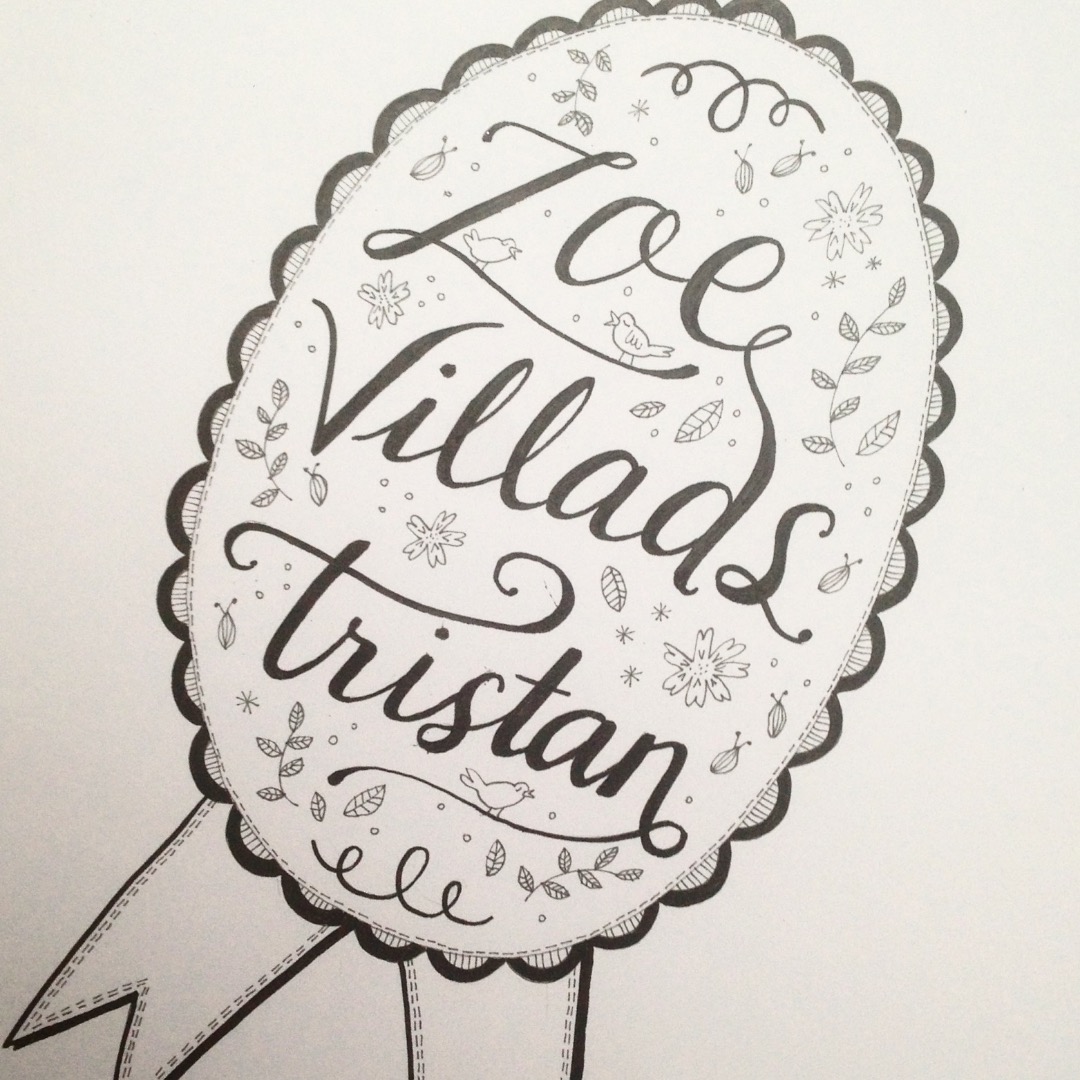 Zoe
Villads
Tristan